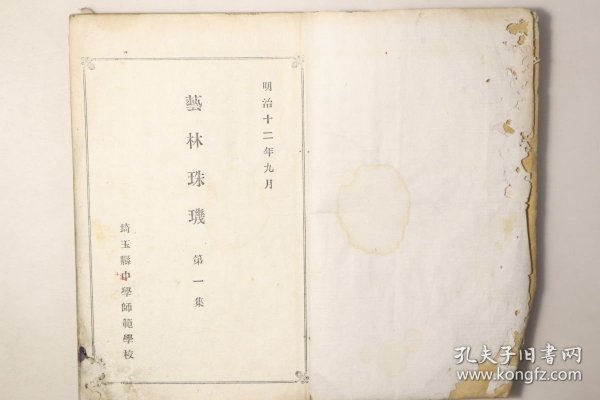 明治十二年九月
藝林珠璣 第一集
埼玉縣中學師範學校
孔夫子旧书网
www.kongfz.com